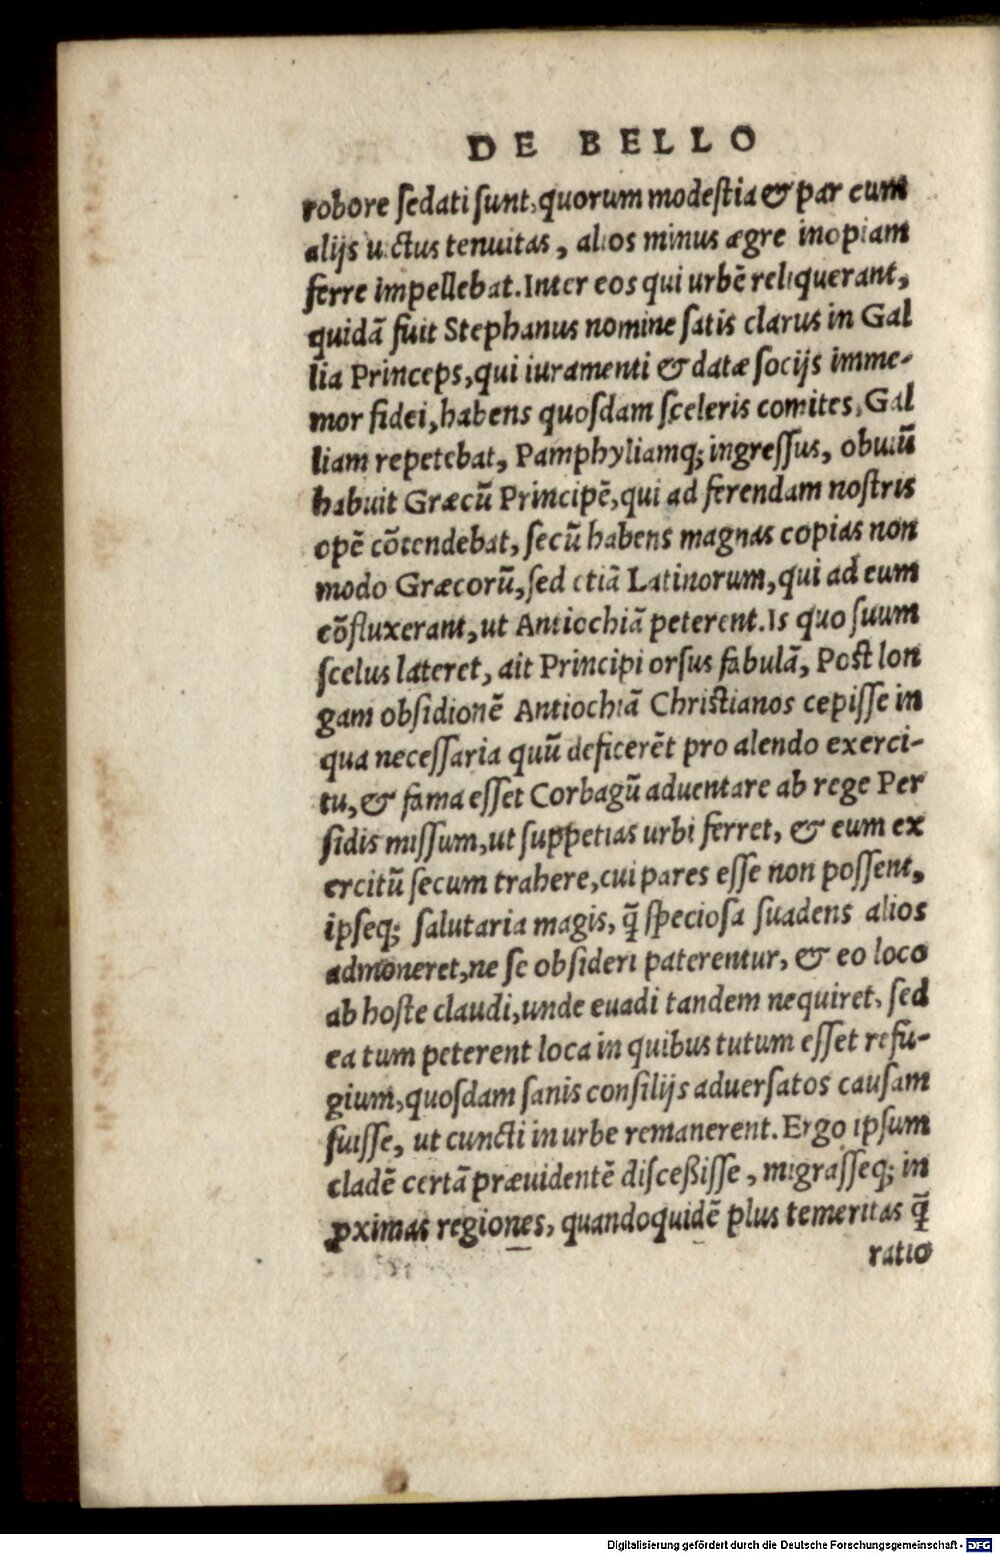 DE BELLO
robore ſedati ſunt, quorum modeſtia & par cum
alijs uictus tenuitas, alios minus ægre inopiam
ferre impellebat. Inter eos qui urbē reliquerant,
quidā fuit Stephanus nomine ſatis clarus in Gal
lia Princeps, qui iuramenti & datæ ſocijs imme-
mor fidei, habens quoſdam ſceleris comites, Gal
liam repetebat, Pamphyliamq; ingreſſus, obuiū
habuit Græcū Principē, qui ad ferendam noſtris
opē cōtendebat, ſecū habens magnas copias non
modo Græcorū, ſed etiā Latinorum, qui ad eum
cōfluxerant, ut Antiochiā peterent. Is quo ſuum
ſcelus lateret, ait Principi orſus fabulā, Poſt lon
gam obſidionē Antiochiā Chriſtianos cepiſſe in
qua neceſſaria quū deficerēt pro alendo exerci-
tu, & fama eſſet Corbagū aduentare ab rege Per
ſidis miſſum, ut ſuppetias urbi ferret, & eum ex
ercitū ſecum trahere, cui pares eſſe non poſſent,
ipſeq; ſalutaria magis, q̄ ſpecioſa ſuadens alios
admoneret, ne ſe obſideri paterentur, & eo loco
ab hoſte claudi, unde euadi tandem nequiret, ſed
ea tum peterent loca in quibus tutum eſſet refu-
gium, quoſdam ſanis conſilijs aduerſatos cauſam
fuiſſe, ut cuncti in urbe remanerent. Ergo ipſum
cladē certā præuidentē diſceßiſſe, migraſſeq; in
ꝓximas regiones, quandoquidē plus temeritas q̄
ratio
Digitalisierung gefördert durch die Deutsche Forschungsgemeinschaft - DFG